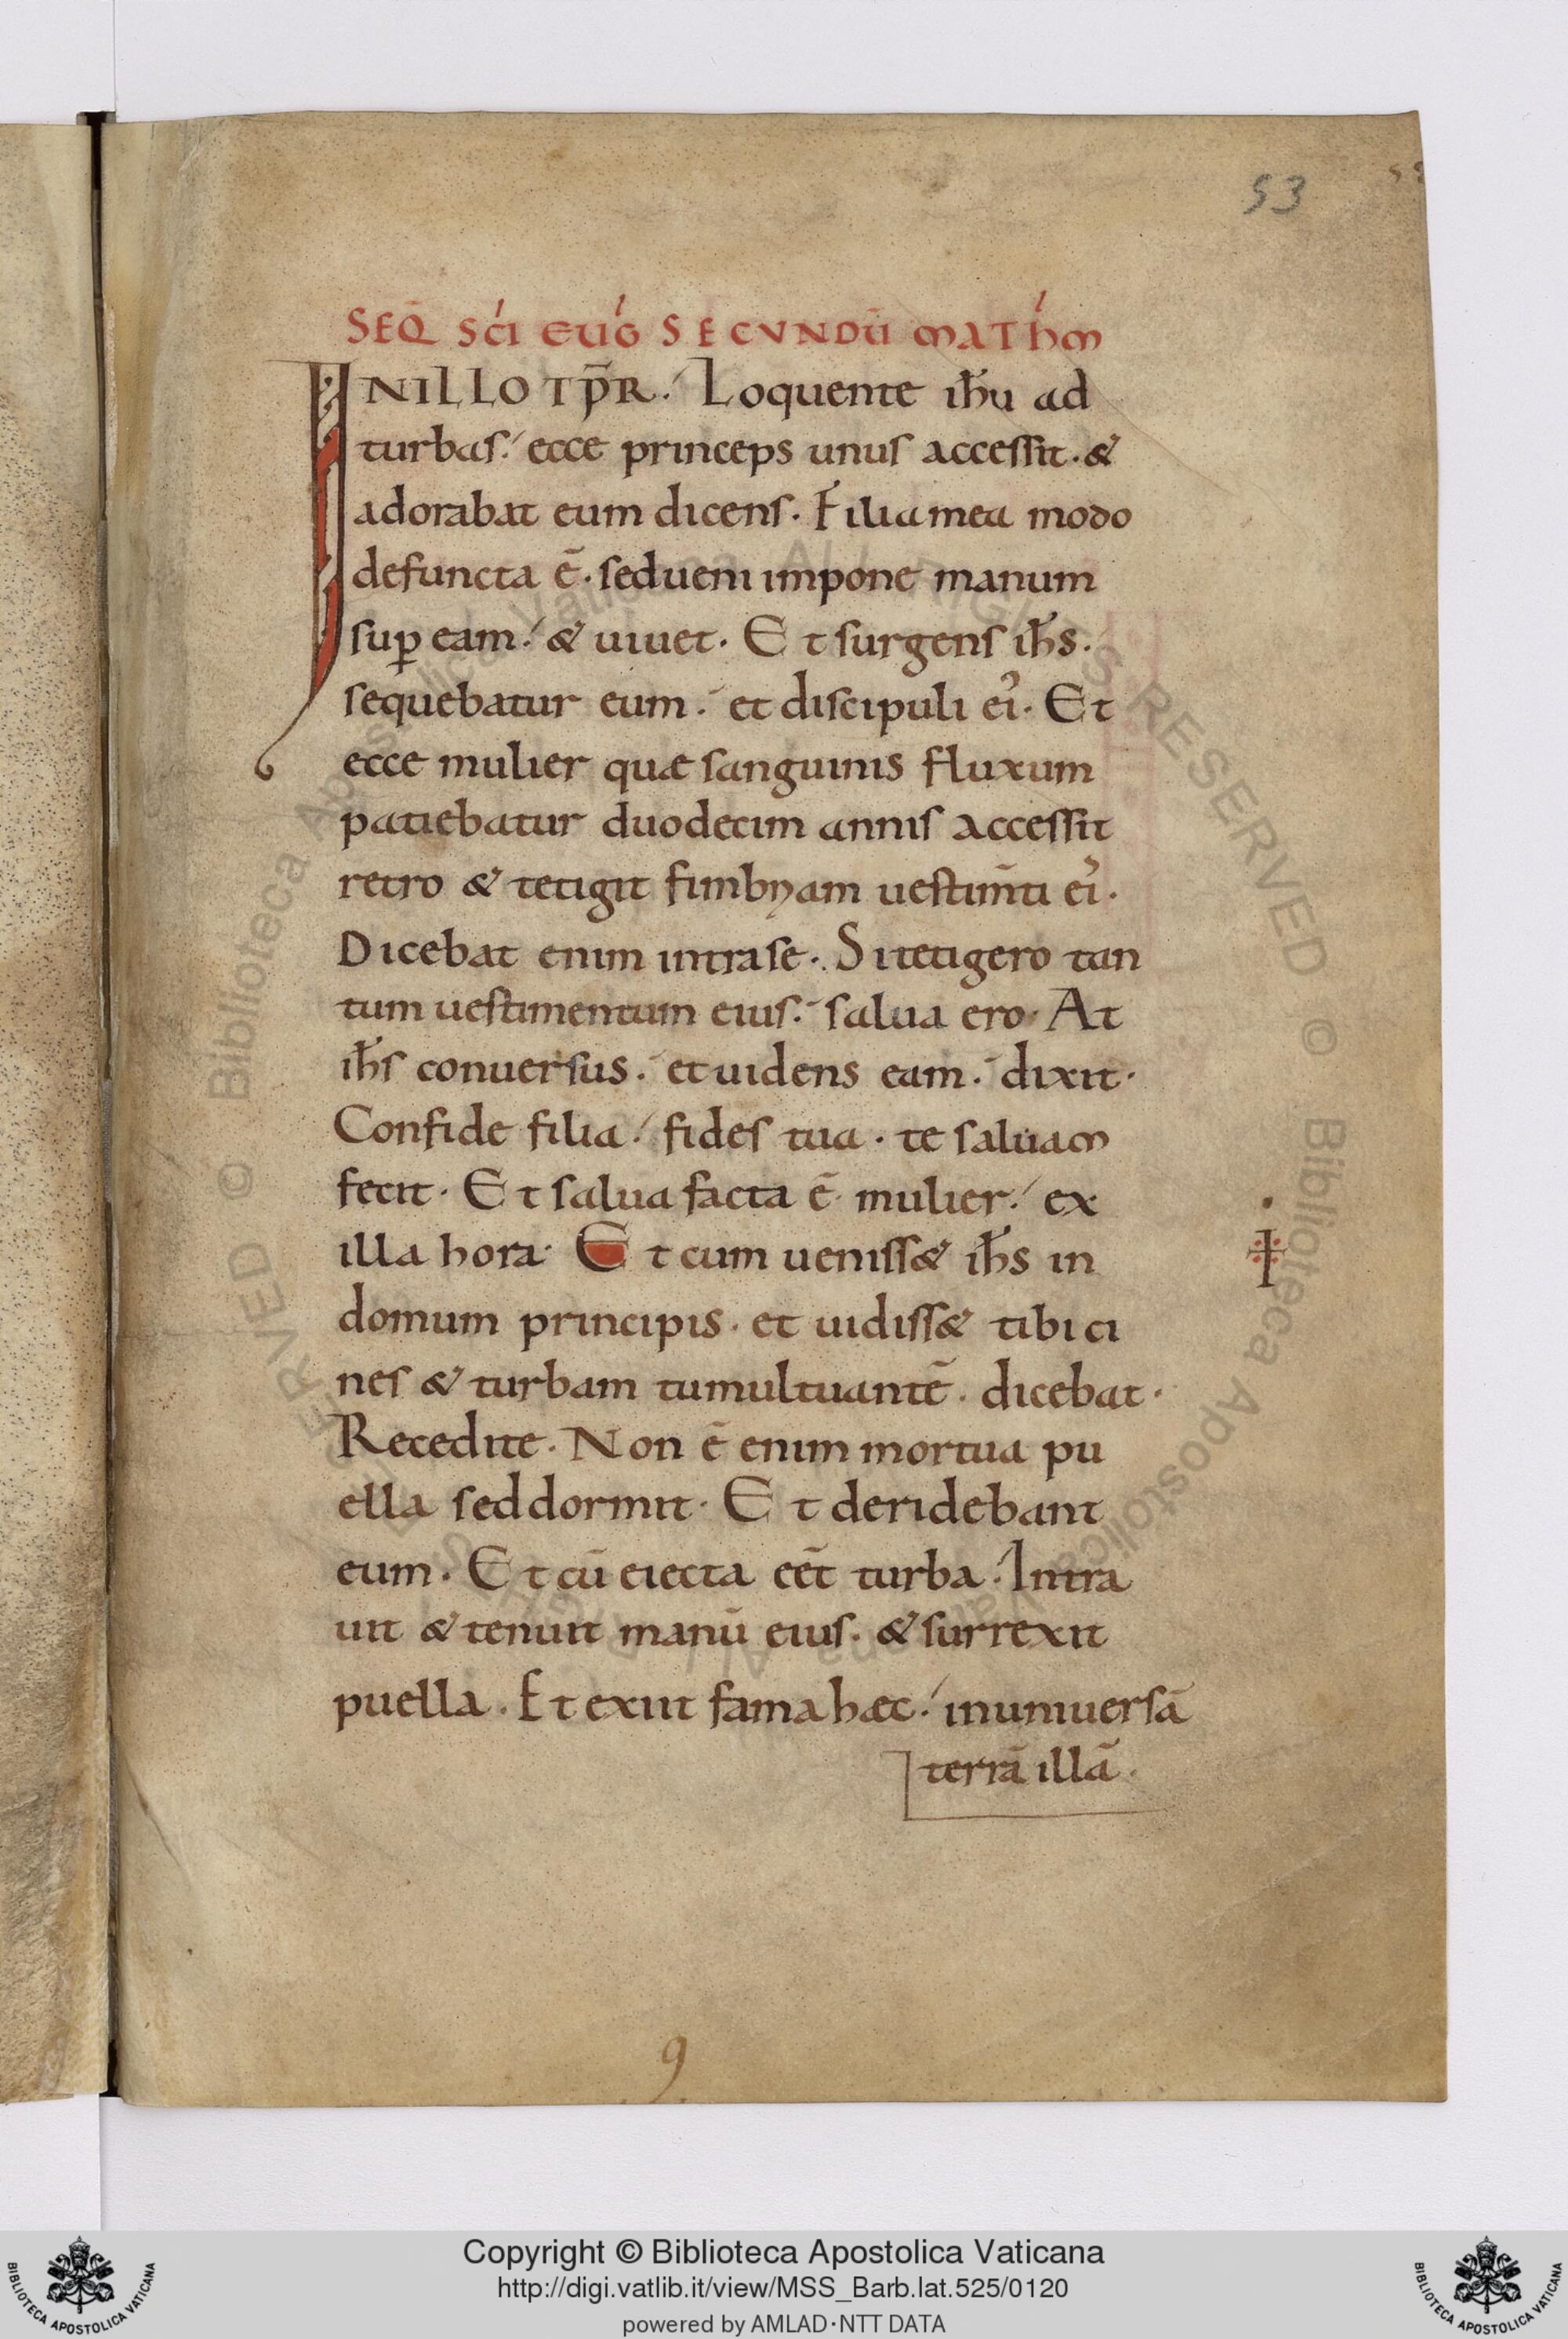 53
SEQ̄ SCĪ EUḠ SECVNDŪ MATHM̄
INILLO TP̄R. Loquente ih̄u ad
turbas. ecce princeps unus accessit. &
adorabat eum dicens. Filia mea modo
defuncta ē. sed ueni impone manum
sup̱ eam. & uiuet. Et surgens ih̄s.
sequebatur eum. et discipuli ei᾽. Et
ecce mulier quæ sanguinis fluxum
patiebatur duodecim annis accessit
retro & tetigit fimbriam uestim̄ti ei᾽.
Dicebat enim intra se. Si tetigero tan
tum uestimentum eius. salua ero. At
ih̄s conuersus. et uidens eam. dixit.
Confide filia. fides tua. te saluam
fecit. Et salua facta ē. mulier. ex
illa hora. Et cum ueniss& ih̄s in
domum principis. et uidiss& tibici
nes & turbam tumultuantē. dicebat.
Recedite. Non ē enim mortua pu
ella sed dormit. Et deridebant
eum. Et cū eiecta eēt turba. Intra
uit & tenuit manū eius. & surrexit
puella. Et exiit fama hæc. in uniuersā
terrā illā.
9
Copyright © Biblioteca Apostolica Vaticana
http://digi.vatlib.it/view/MSS_Barb.lat.525/0120
powered by AMLAD·NTT DATA
BIBLIOTECA APOSTOLICA VATICANA
BIBLIOTECA APOSTOLICA VATICANA